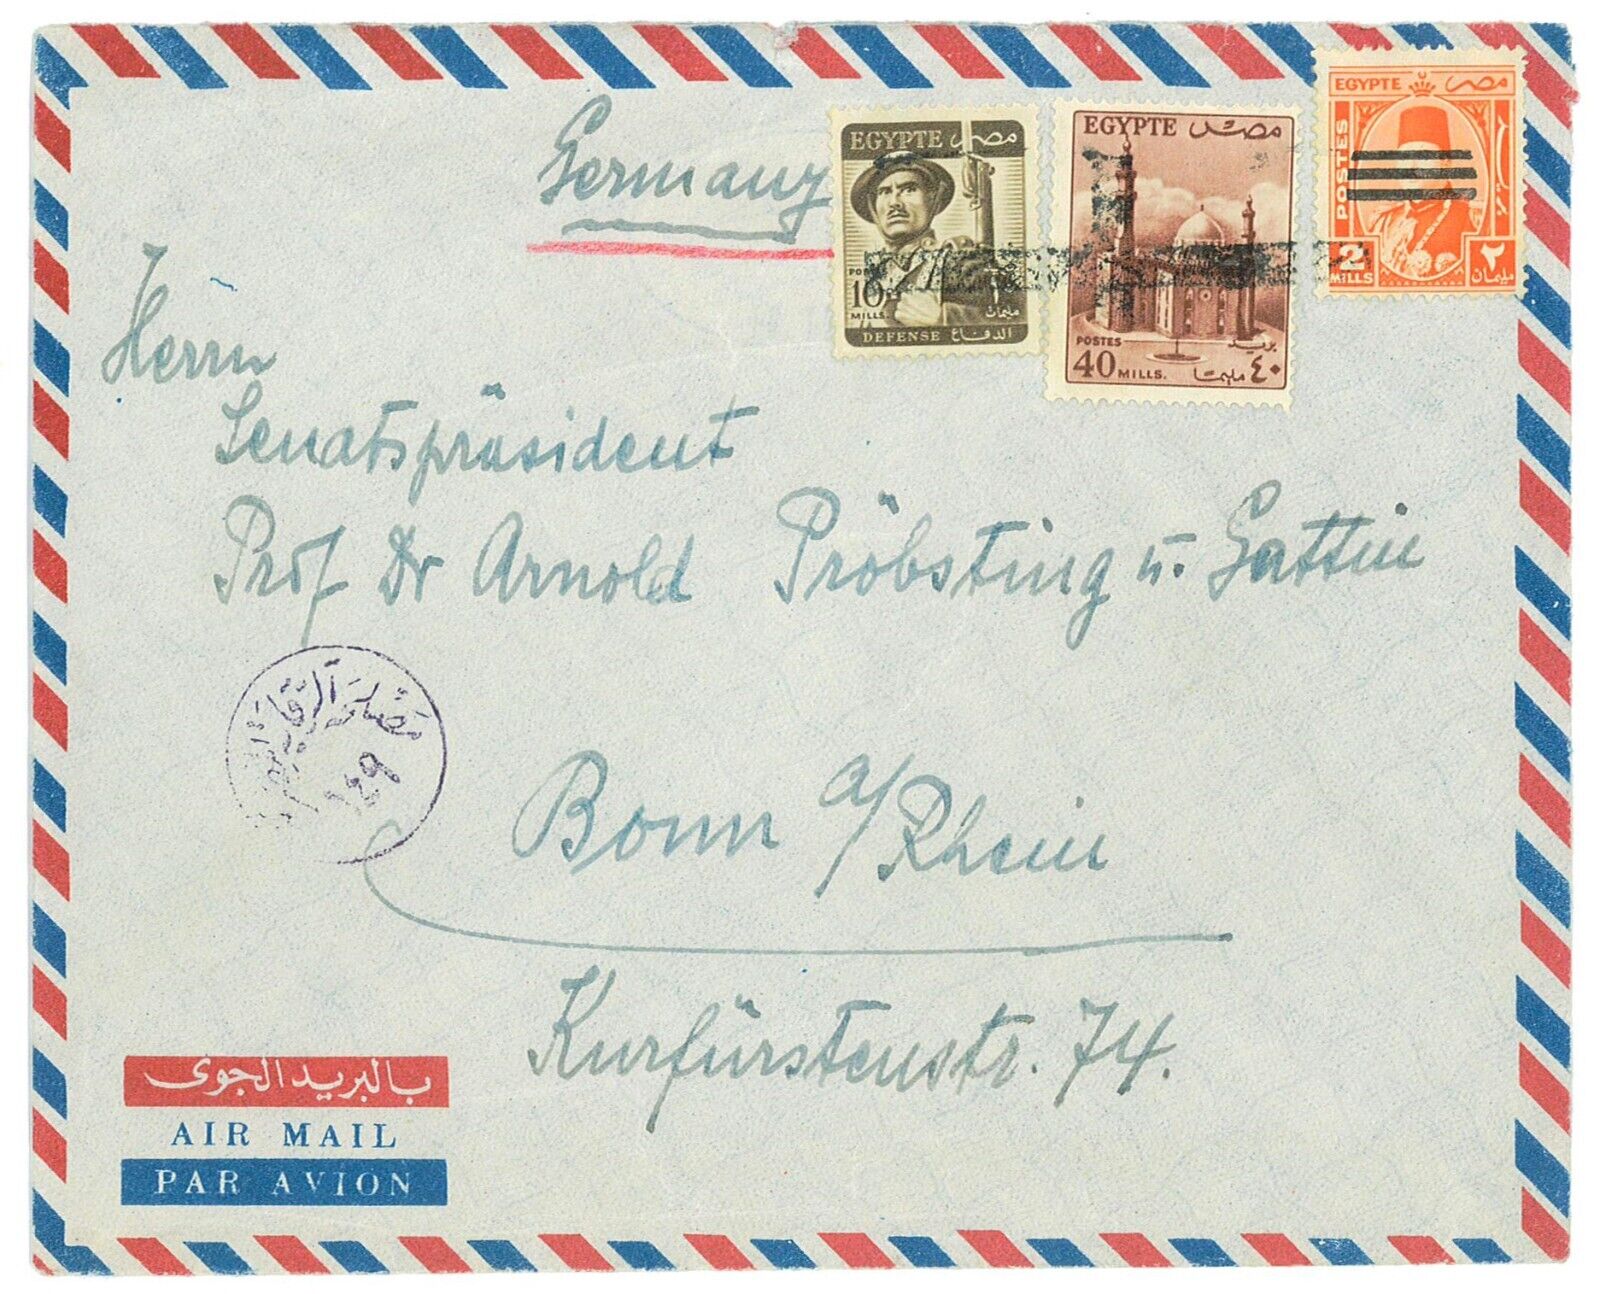 Germany
EGYPTE مصر
POSTES
10
MILLS. مليمات
DEFENSE الدفاع
EGYPTE مصر
POSTES بريد
40 MILLS. ٤٠ مليمًا
EGYPTE مصر
POSTES
2 ٢
MILLS مليمان
Herrn
Senatspräsident
Prof Dr Arnold Pröbsting u. Gattin
مصلحة الرقابة
١٤٩
Bonn a/Rhein
Kurfürstenstr. 74.
بالبريد الجوى
AIR MAIL
PAR AVION